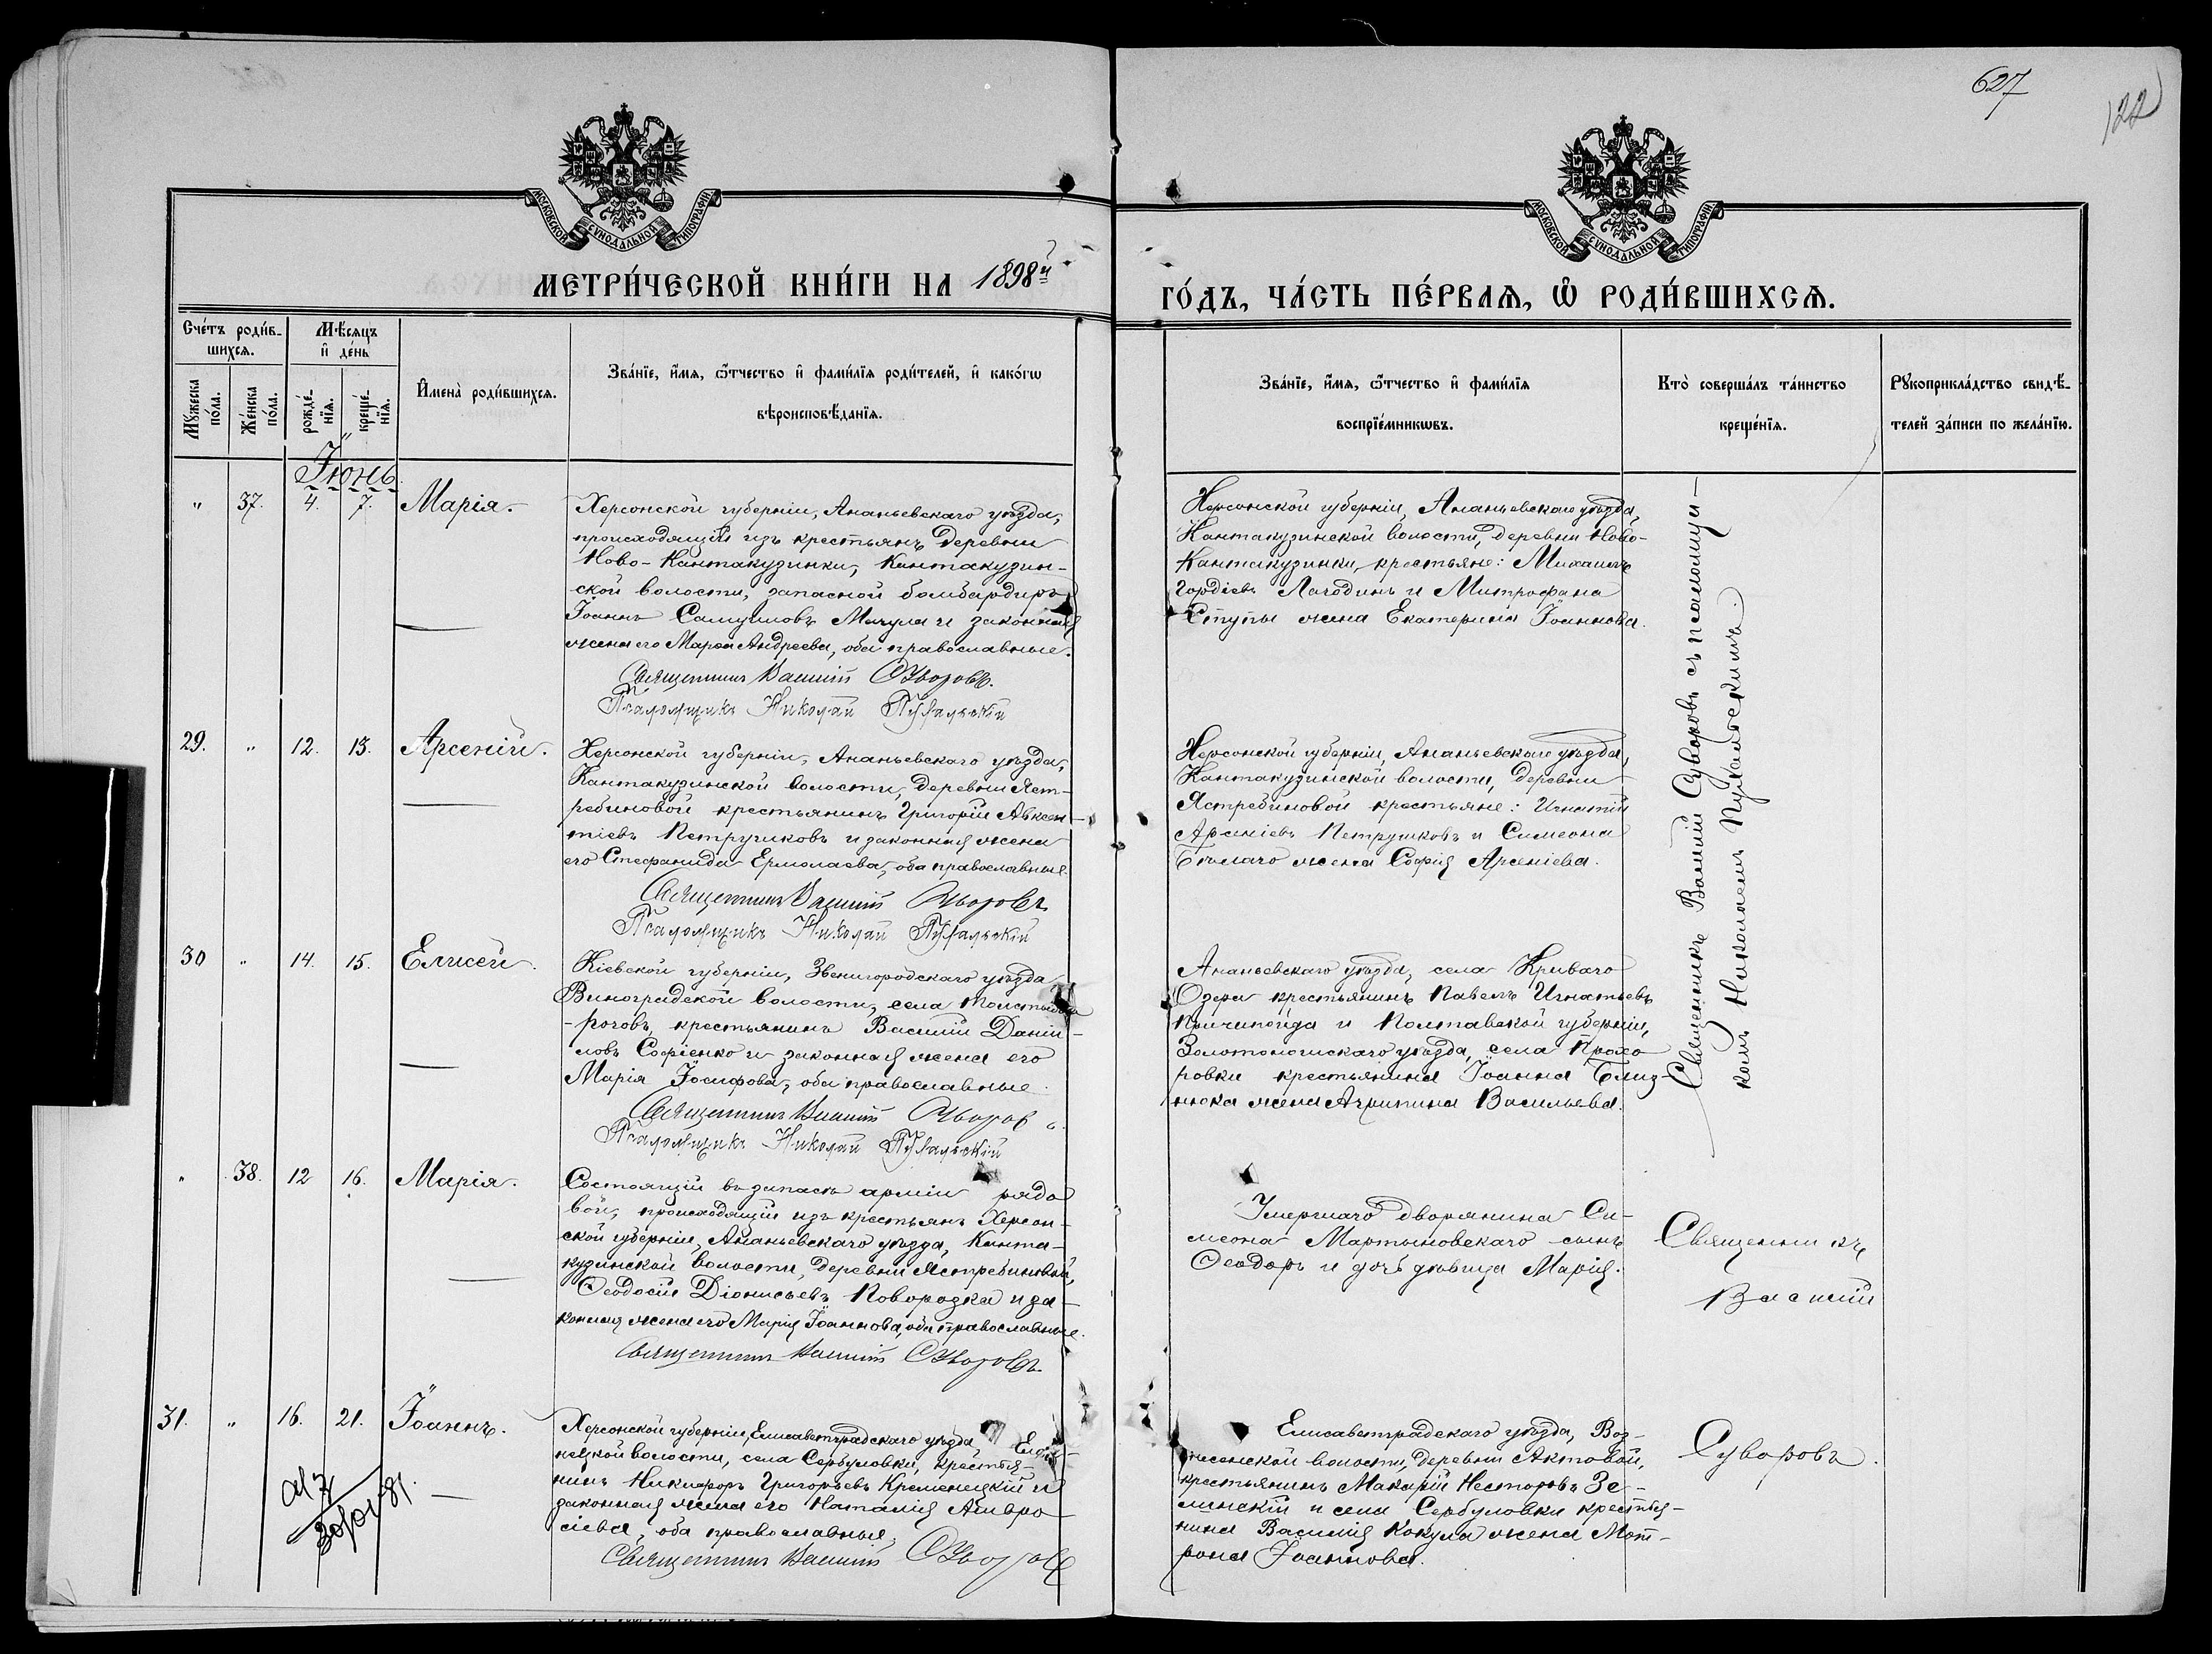 627
122
МОСКОВСКОЙ СѴНОДАЛЬНОЙ ТИПОГРАФІИ
МОСКОВСКОЙ СѴНОДАЛЬНОЙ ТИПОГРАФІИ
МЕТРИ́ЧЕСКОЙ КНИ́ГИ НА 1898й
ГО́ДЪ, ЧА́СТЬ ПЕ́РВАѦ, Ѡ РОДИ́ВШИХСѦ.
Счéтъ роди́в-
шихсѧ.
Мѣ́сѧцъ
и҆ дéнь
Мꙋ́жеска
по́ла.
Жéнска
по́ла.
рождé-
нїѧ.
крещé-
нїѧ.
И҆менà роди́вшихсѧ.
Зва́нїе, и҆́мѧ, ѻ҆́тчество и҆ фами́лїѧ роди́телей, и҆ како́гѡ
вѣроисповѣ́данїѧ.
Зва́нїе, и҆́мѧ, ѻ҆́тчество и҆ фами́лїѧ
воспрїе́мникѡвъ.
Кто̀ соверша́лъ та́инство
креще́нїѧ.
Рꙋкоприкла́дство свидѣ́-
телей за́писи по жела́нїю.
Іюнь
" 37. 4. 7. Марія.
Херсонской губерніи, Ананьевскаго уѣзда,
происходящій изъ крестьянъ деревни
Ново-Кантакузинки, Кантакузин-
ской волости, запасной бомбардиръ
Іоаннъ Самуиловъ Мачула и законная
жена его Марѳа Андреева, оба православные.
Священникъ Василій Суворовъ.
Псаломщикъ Николай
Херсонской губерніи, Ананьевскаго уѣзда,
Кантакузинской волости, деревни Ново-
Кантакузинки, крестьяне: Михаилъ
Гордіевъ Лагодинъ и Митрофана
Ступы жена Екатерина Іоаннова.
Священникъ Василій Суворовъ съ псаломщи-
комъ Николаемъ
29. " 12. 13. Арсеній.
Херсонской губерніи, Ананьевскаго уѣзда,
Кантакузинской волости, деревни Яст-
ребиновой крестьянинъ Григорій Авксен-
тіевъ Петрушковъ и законная жена
его Стефанида Ермолаева, оба православные.
Священникъ Василій Суворовъ
Псаломщикъ Николай
Херсонской губерніи, Ананьевскаго уѣзда,
Кантакузинской волости, деревни
Ястребиновой крестьяне: Игнатій
Арсеніевъ Петрушковъ и Симеона
Бѣлаго жена Софія Арсеніева.
30 " 14. 15. Елисей.
Кіевской губерніи, Звенигородскаго уѣзда,
Виноградской волости, села Толстыхъ
-роговъ, крестьянинъ Василій Даніи-
ловъ Софіенко и законная жена его
Марія Іосифова, оба православные.
Священникъ Василій Суворовъ.
Псаломщикъ Николай
Ананьевскаго уѣзда, села Криваго
Озера крестьянинъ Павелъ Игнатьевъ
и Полтавской губерніи,
Золотоношскаго уѣзда, села Прохо
ровки крестьянина Іоанна Близ-
нюка жена Агрипина Васильева.
" 38. 12 16. Марія.
Состоящій въ запасѣ арміи рядо
вой, происходящій изъ крестьянъ Херсон-
ской губерніи, Ананьевскаго уѣзда, Канта-
кузинской волости, деревни Ястребиновой,
Ѳеодосій Діонисьевъ Поворозка и за-
конная жена его Марія Іоаннова, оба православные.
Священникъ Василій Суворовъ.
Умершаго дворянина Си-
меона Мартыновскаго сынъ
Ѳеодоръ и дочь дѣвица Марія.
Священникъ
Василій
31. " 16. 21. Іоаннъ.
Херсонской губерніи, Елисаветградскаго уѣзда,
нецкой волости, села Сербуловки, крестья-
нинъ Никифоръ Григорьевъ Кременецкій и
законная жена его Наталія Амвро-
сіева, оба православные.
Священникъ Василій Суворовъ
Елисаветградскаго уѣзда, Воз-
несенской волости, деревни Актовой,
крестьянинъ Макарій Несторовъ Зе-
линскій и села Сербуловки крестья-
нина Василія Кокула жена Мат-
рона Іоаннова.
Суворовъ.